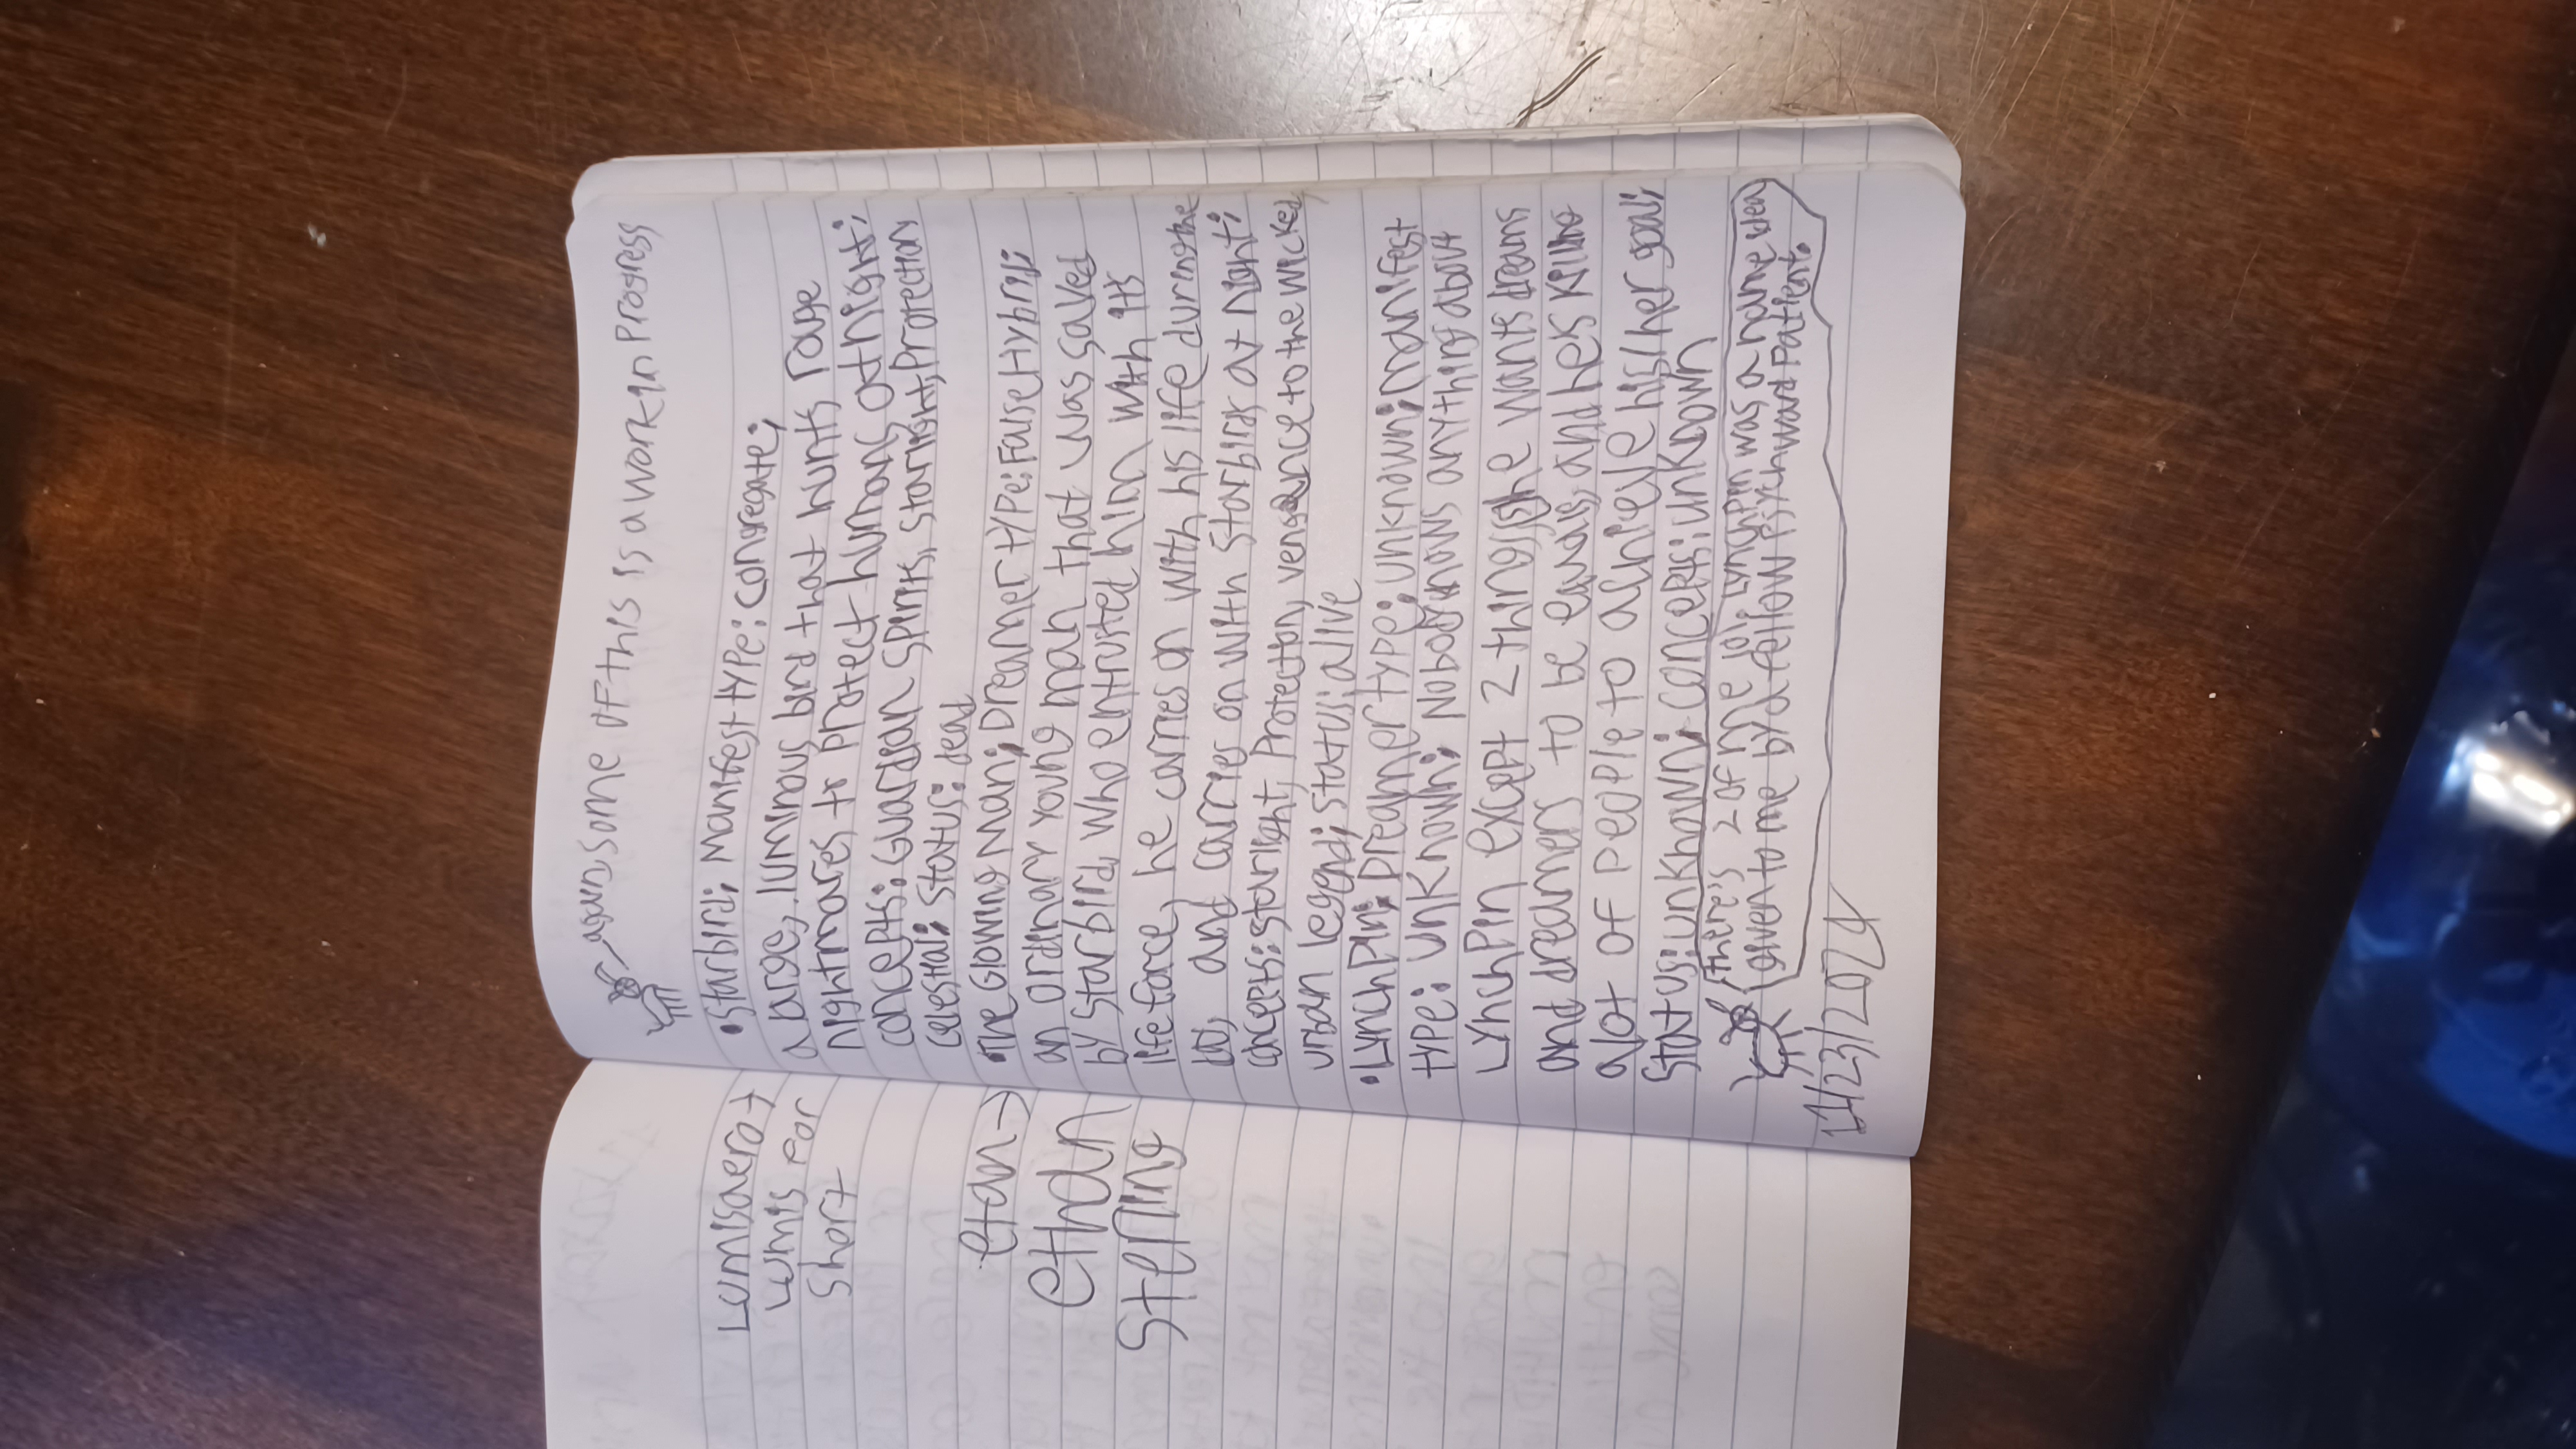 again, some of this is a work in progress
Lumisaero→
Lumis for
short
•Starbird; Manifest type: congregate;
a large, luminous bird that hunts rage
nightmares to protect humans at night;
concepts: Guardian spirits, starlight, Protection,
celestial; status: dead
etan→
ethan
Sterling
•The Glowing Man; Dreamer type: False Hybrid;
an ordinary young man that was saved
by Starbird, who entrusted him with its
life force, he carries on with his life during the
day, and carries on with Starbirds at night;
concepts: starlight, Protection, vengeance to the wicked,
urban legend; status: alive
•LynchPin; Dreamer type: unknown; manifest
type: unknown; Nobody knows anything about
LynchPin except 2 things, she wants dreams
and dreamers to be equals, and he's killing
alot of people to achieve his/her goal;
status: unknown; concepts: unknown
there's 2 of me lol. LynchPin was a name idea
given to me by a fellow psychward patient.
11/23/2024